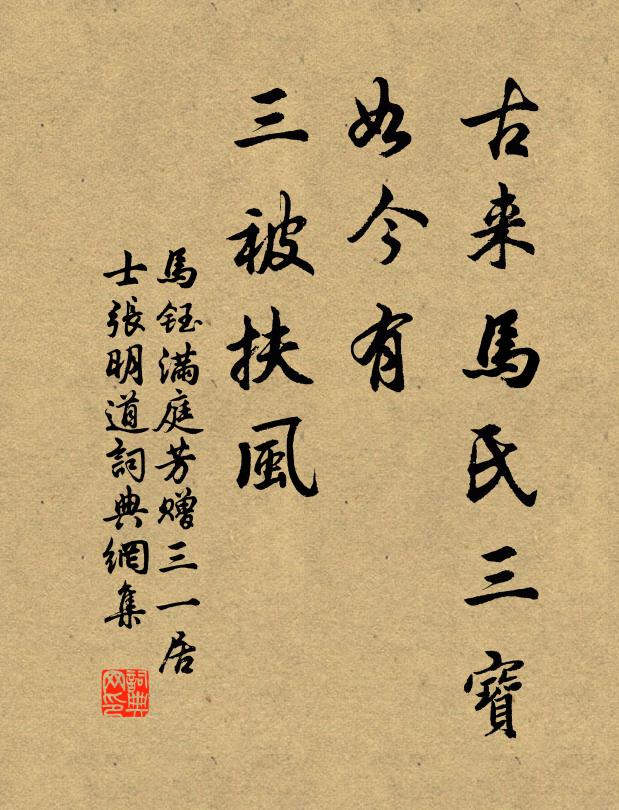 古来馬氏三寶
如今有
三被扶風
馬鈺满庭芳赠三一居
士張明道詞典網集
詞典
网印